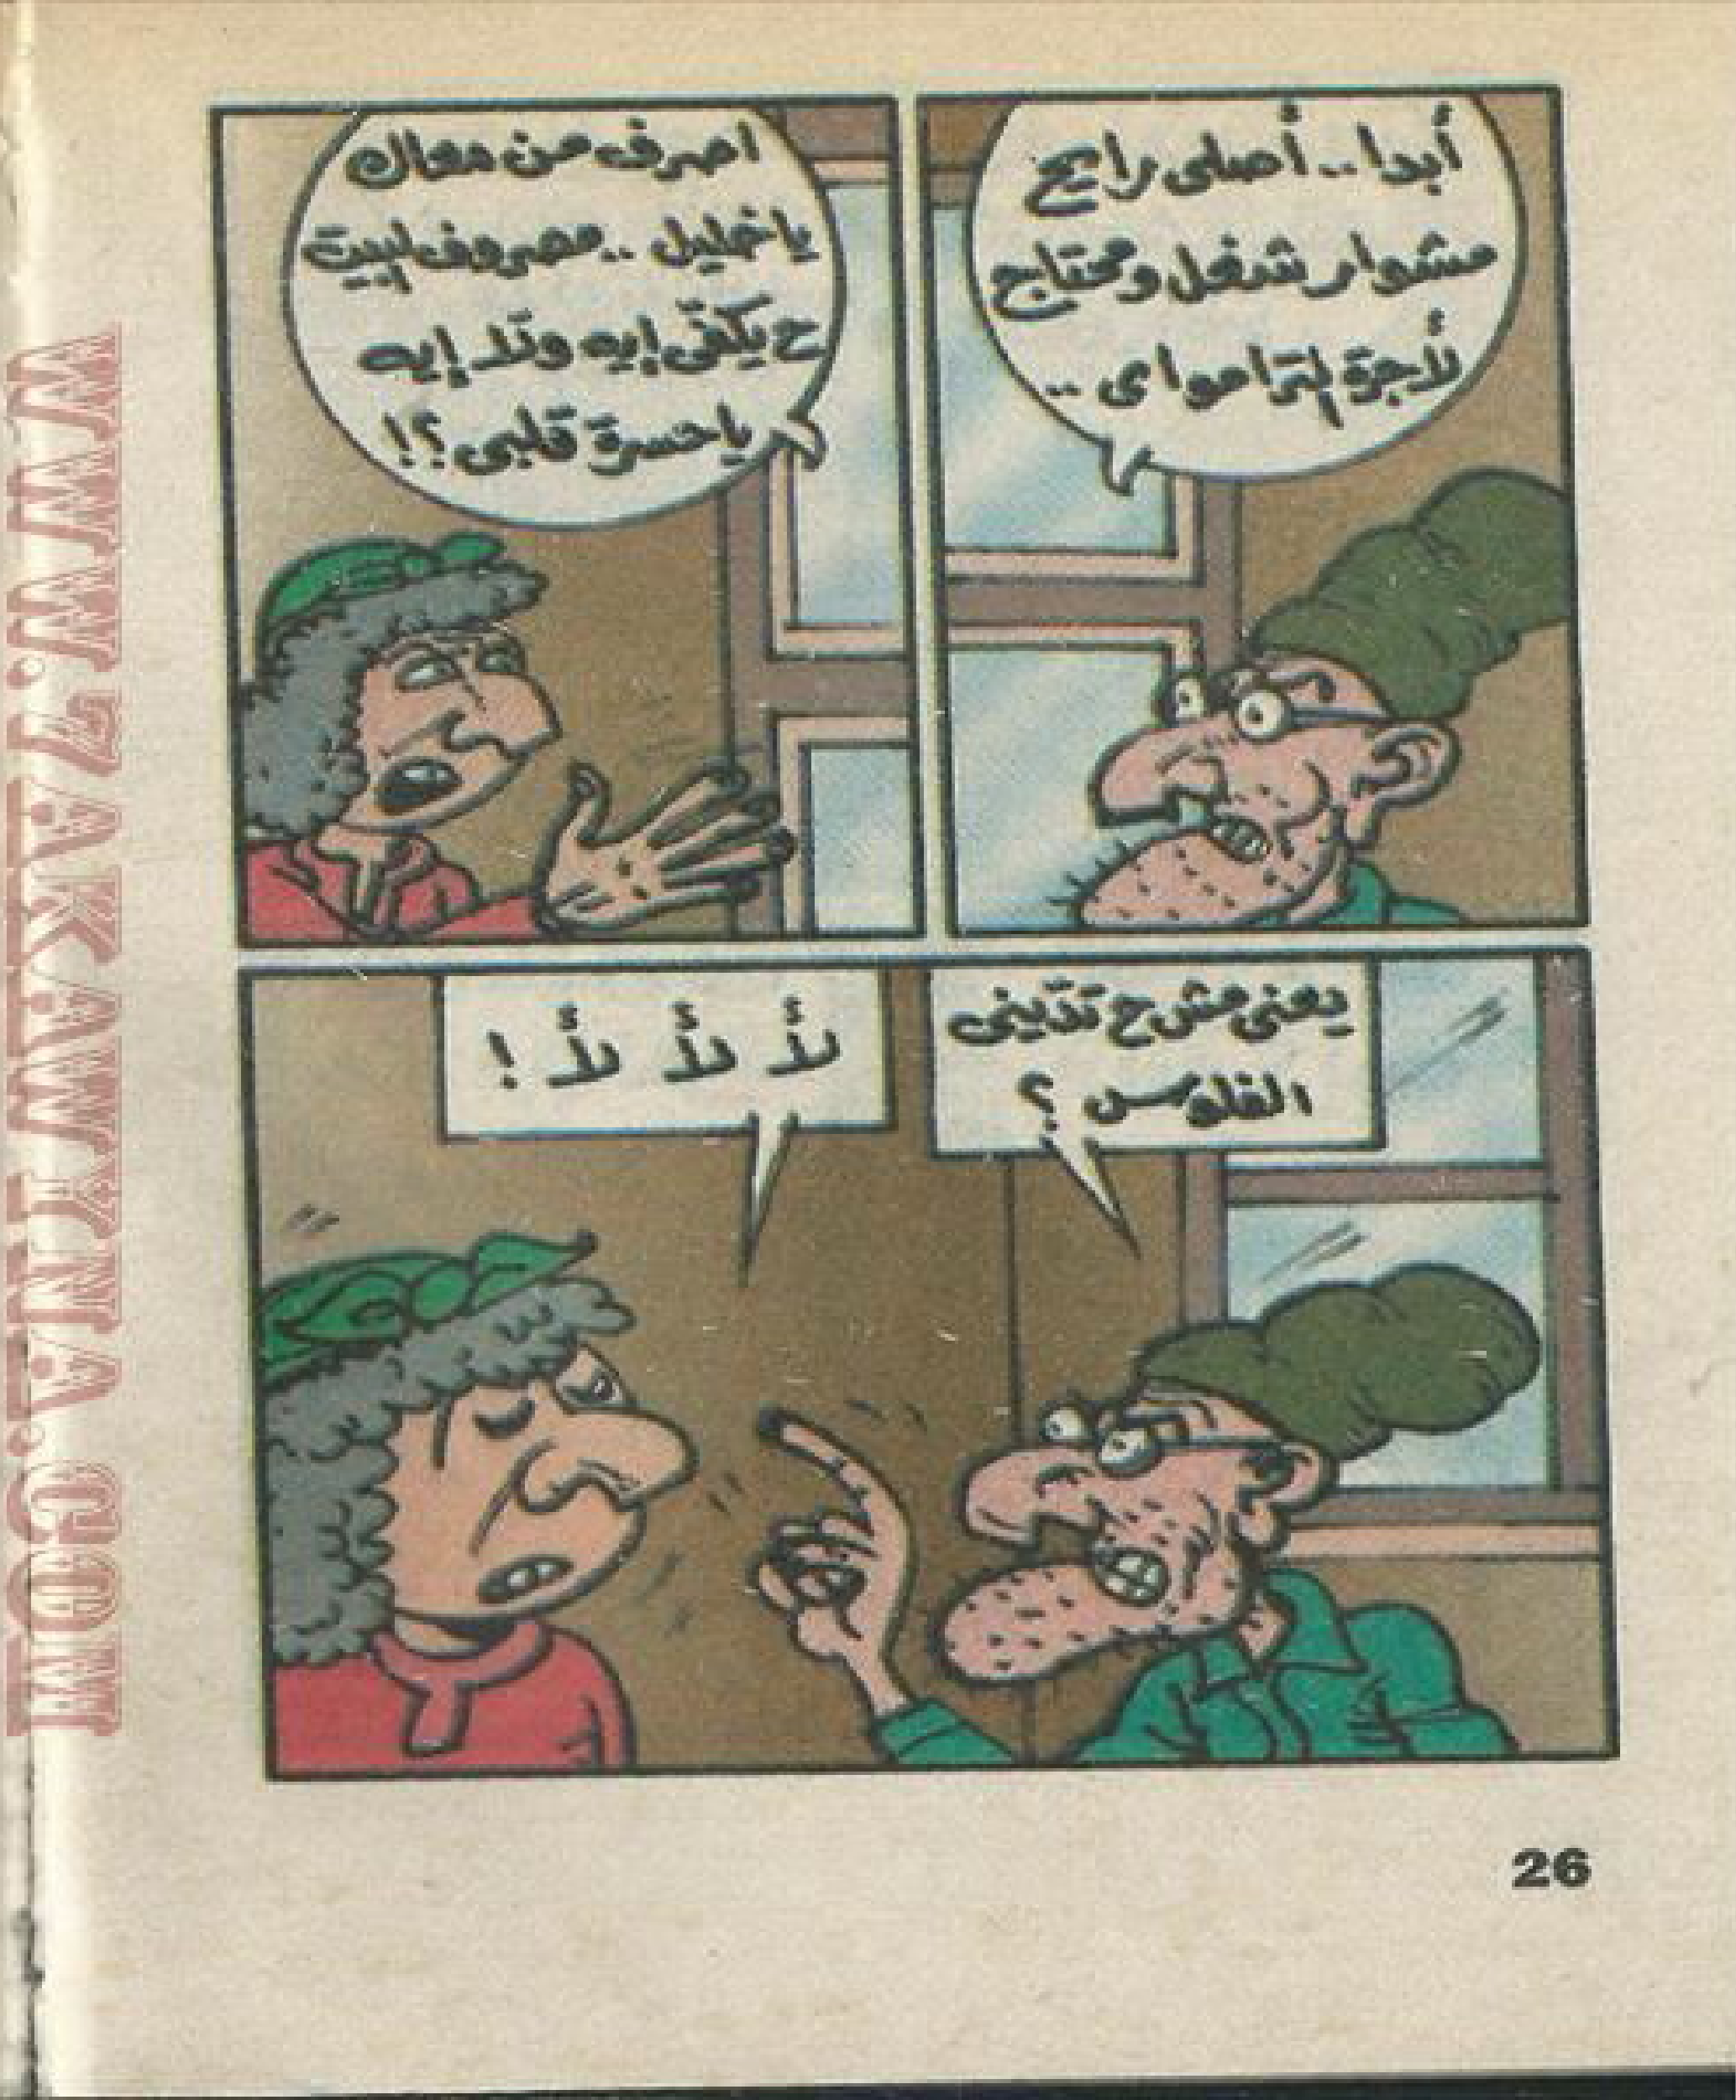 أبدا.. أصلى رايح
مشوار شغل ومحتاج
لأجرة لترامواى ..
اصرف من معاك
ياخليل .. مصروف لبيت
ح يكفى إيه ولا إيه
ياحسرة قلبى؟!
يعنى مش ح تدّينى
الفلوس؟
لأ لأ لأ!
26
WWW.ZAKAWKYNA.COM